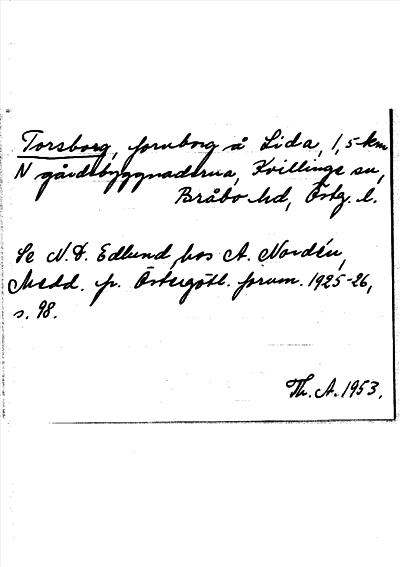 Torsborg, fornborg å Lida, 1,5 km
N gårdsbyggnaderna, Kvillinge sn,
Bråbo hd, Östg. l.
Se N. D. Edlund hos A. Nordén,
Medd. fr. Östergötl. fornm. 1925-26,
s. 98.
Th. A. 1953.